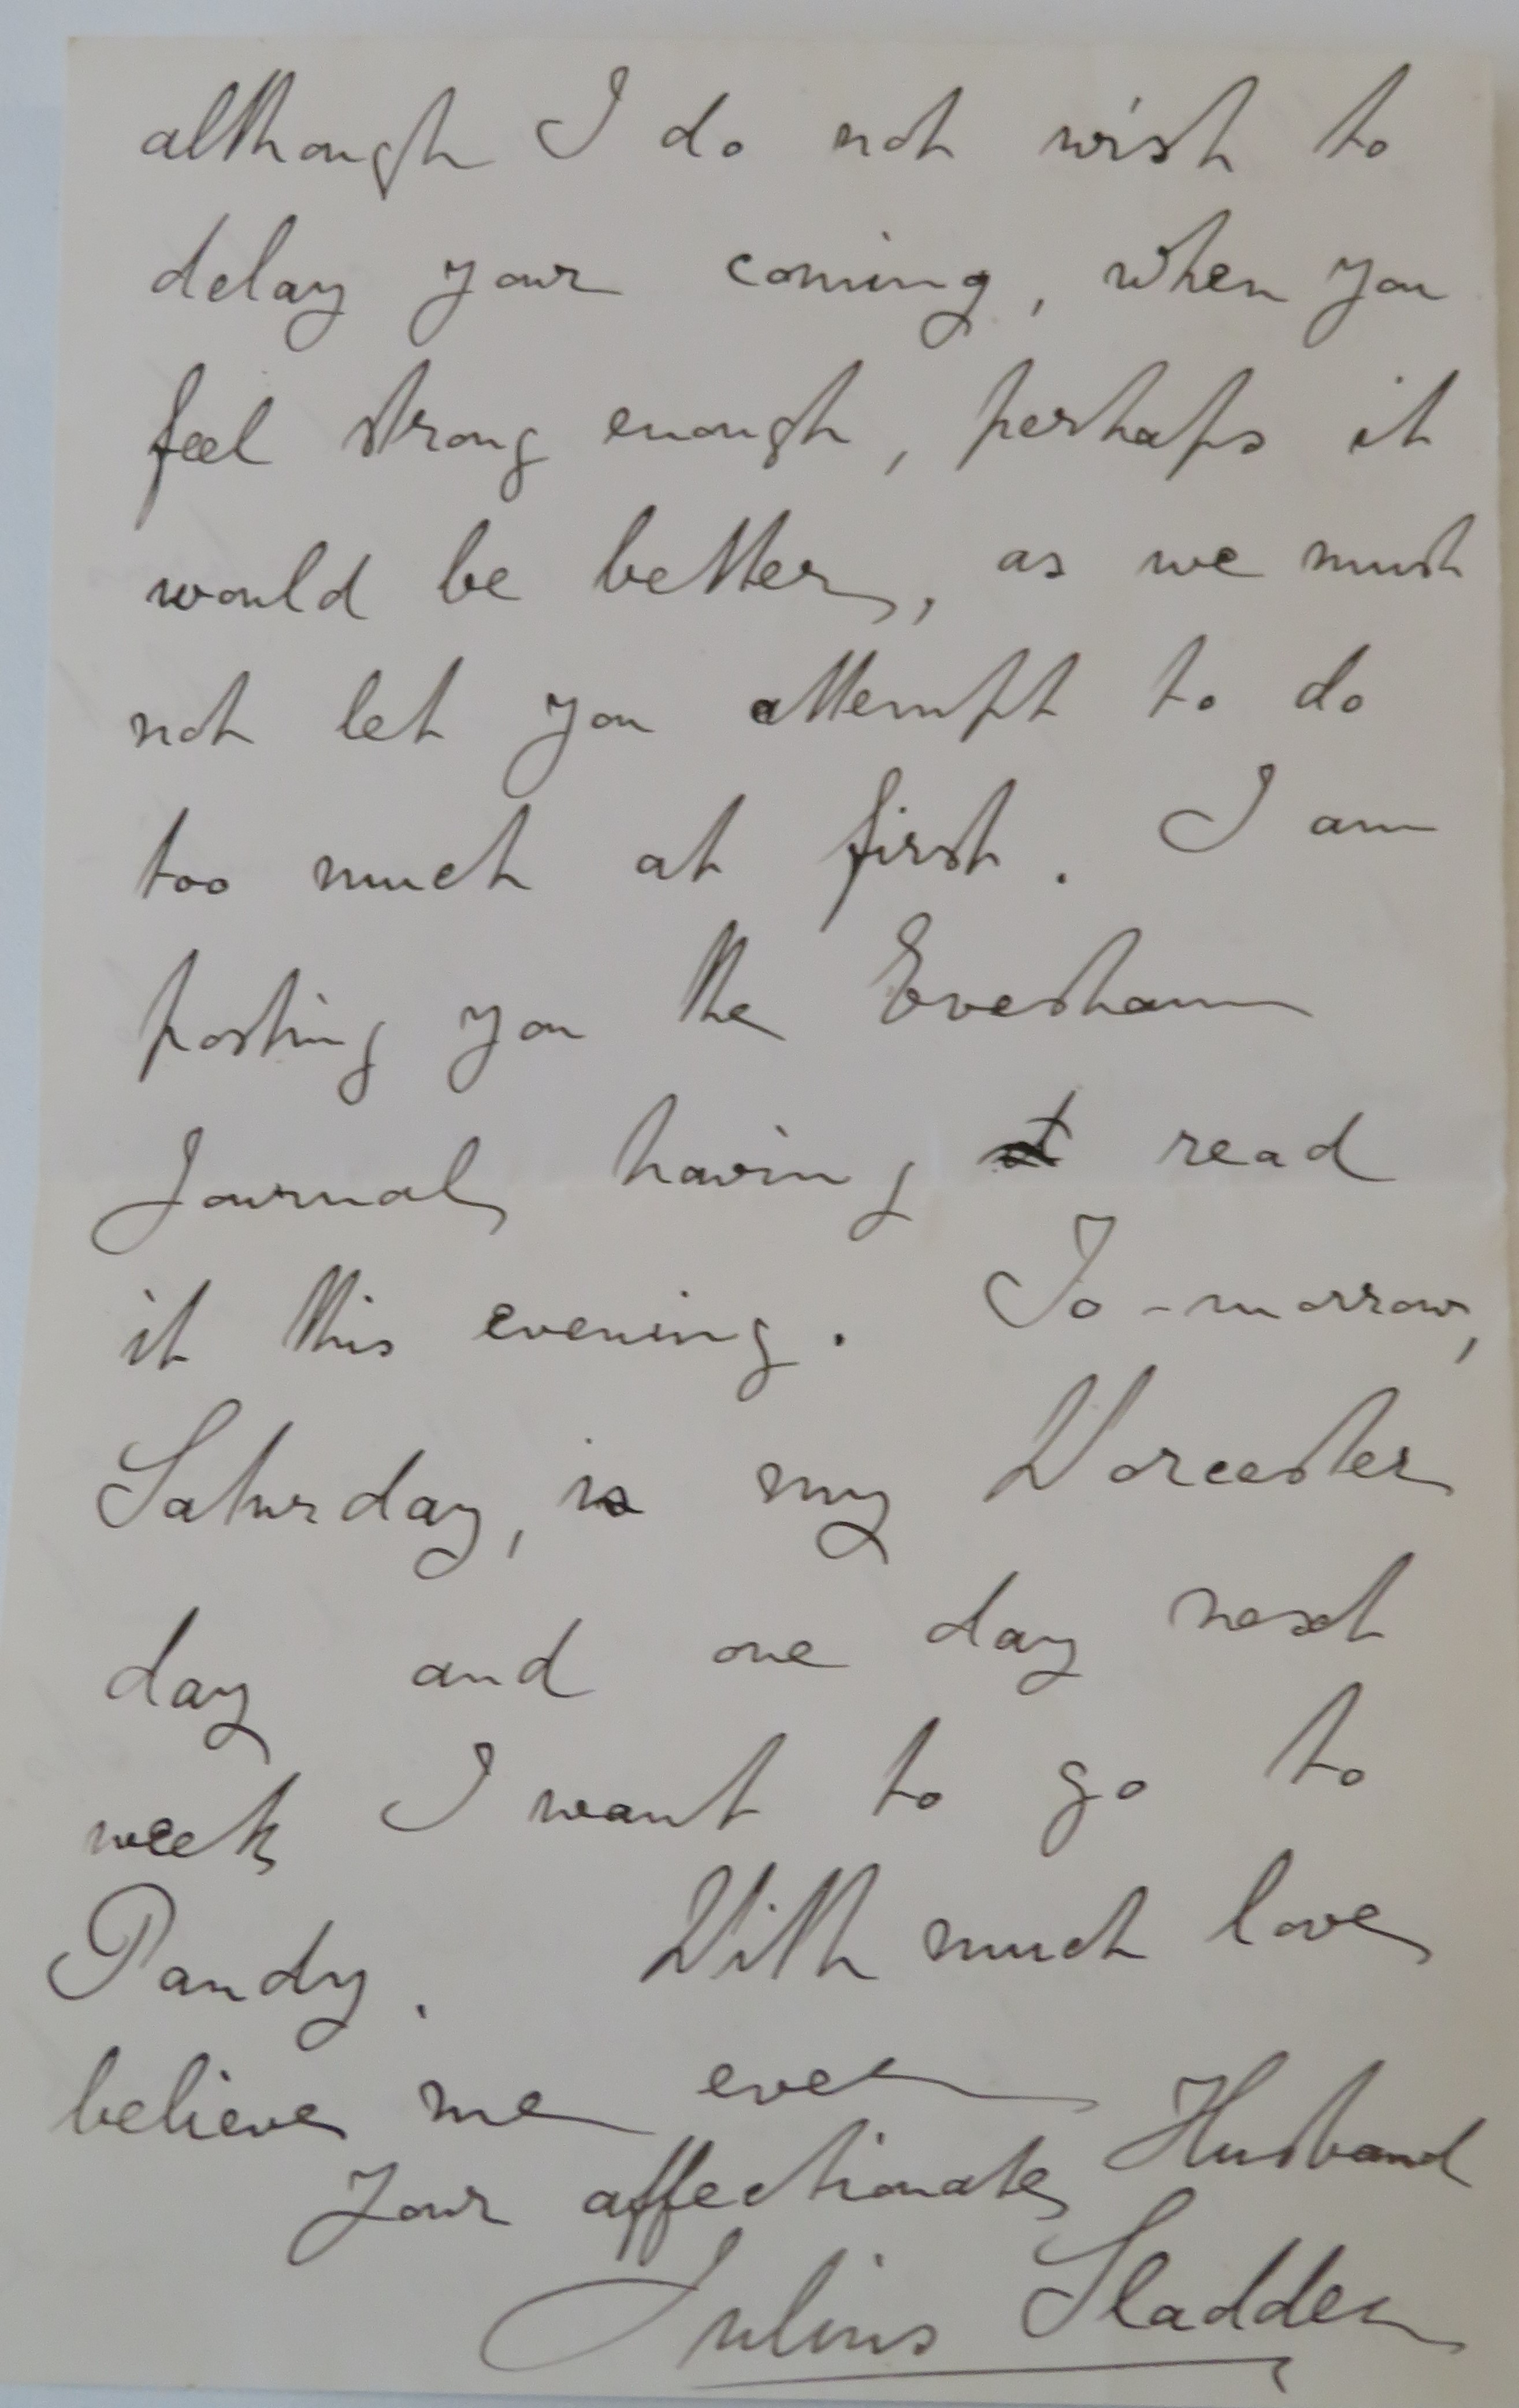 although I do not wish to
delay your coming, when you
feel strong enough, perhaps it
would be better, as we must
not let you attempt to do
too much at first. I am
posting you the Evesham
Journal having read
it this evening. To-morrow,
Saturday, is my Worcester
day and one day next
week I want to go to
Pandy. With much love
believe me ever
your affectionate Husband
Julius Sladden